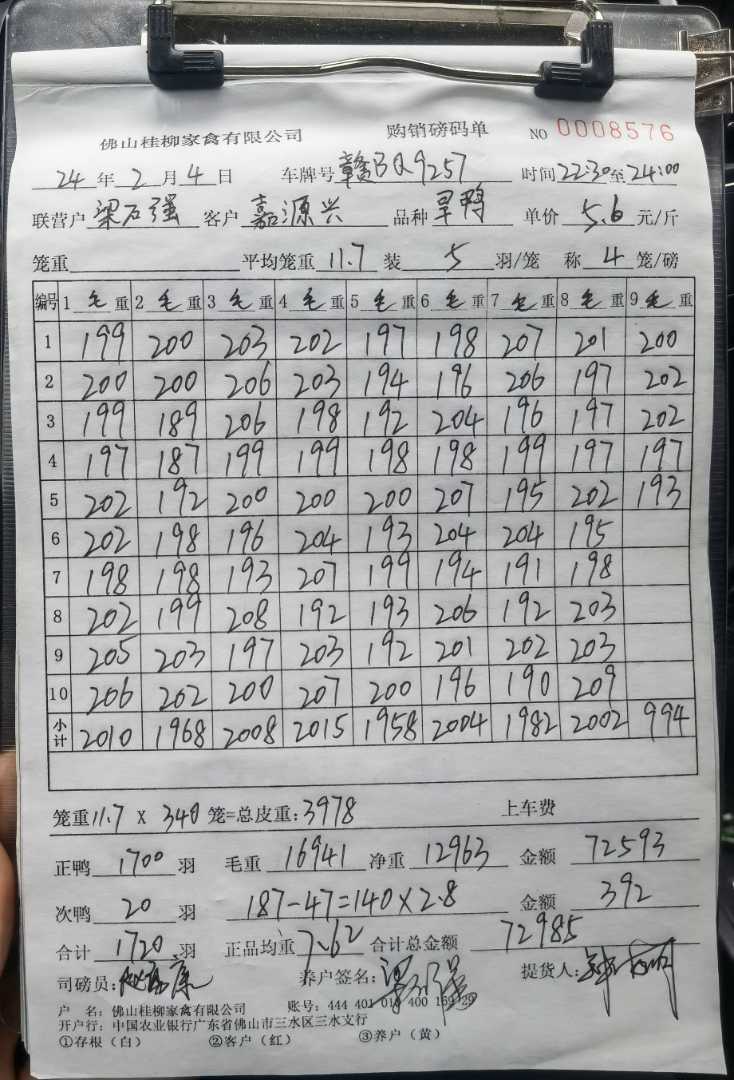 佛山桂柳家禽有限公司 购销磅码单 NO 0008576
24 年 2 月 4 日 车牌号 赣BQ9257 时间 22:30 至 24:00
联营户 梁石强 客户 嘉源兴 品种 旱鸭 单价 5.6 元/斤
笼重 平均笼重 11.7 装 5 羽/笼 称 4 笼/磅
编号 1 毛 重 2 毛 重 3 毛 重 4 毛 重 5 毛 重 6 毛 重 7 毛 重 8 毛 重 9 毛 重
1 199 200 203 202 197 198 207 201 200
2 200 200 206 203 194 196 206 197 202
3 199 189 206 198 192 204 196 197 202
4 197 187 199 199 198 198 199 197 197
5 202 192 200 200 200 207 195 202 193
6 202 198 196 204 193 204 204 195
7 198 198 193 207 199 194 191 198
8 202 199 208 192 193 206 192 203
9 205 203 197 203 192 201 202 203
10 206 202 200 207 200 196 190 209
小计 2010 1968 2008 2015 1958 2004 1982 2002 994
笼重 11.7 X 340 笼=总皮重: 3978 上车费
正鸭 1700 羽 毛重 16941 净重 12963 金额 72593
次鸭 20 羽 187-47=140×2.8 金额 392
合计 1720 羽 正品均重 7.62 合计总金额 72985
司磅员: 养户签名: 提货人:
户 名: 佛山桂柳家禽有限公司 账号: 444 401 01 400 169
开户行: 中国农业银行广东省佛山市三水区三水支行
①存根(白) ②客户(红) ③养户(黄)